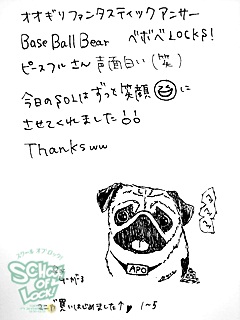 オオギリファンタスティックアンサー
Base Ball Bear ベボベLOCKS!
ピースフルさん 声面白い(笑)
今日のSOLはずっと笑顔に
させてくれました!!
Thanks ww
APO
スクール オブ ロック!
SCHOOL
OF
LOCK!
買いはじめました↑ 1~5